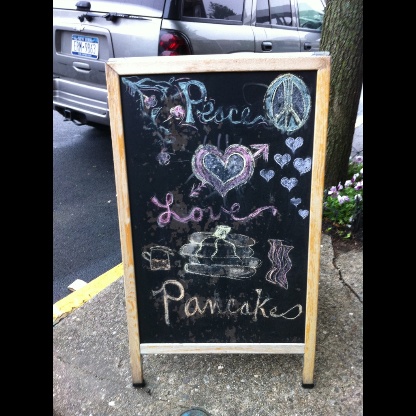 Peace
Love
Pancakes